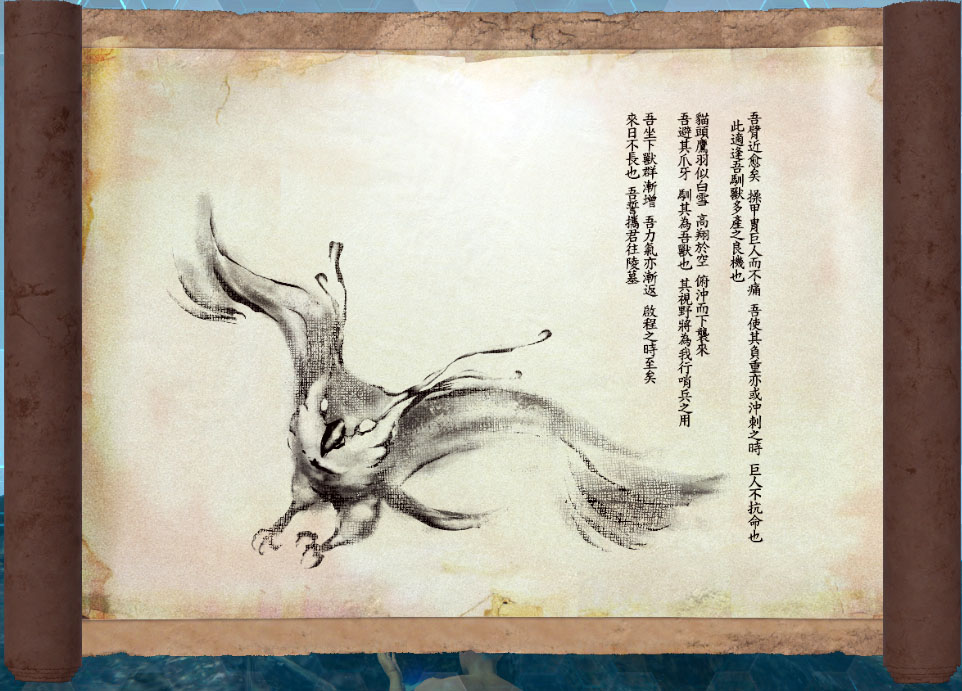 吾臂近愈矣 揉甲冑巨人而不痛 吾使其負重亦或沖刺之時 巨人不抗命也
此適逢吾馴獸多產之良機也
貓頭鷹羽似白雪 高翔於空 俯沖而下襲來
吾避其爪牙 馴其為吾獸也 其視野將為我行哨兵之用
吾坐下獸群漸增 吾力氣亦漸返 啟程之時至矣
來日不長也 吾誓攜君往陵墓